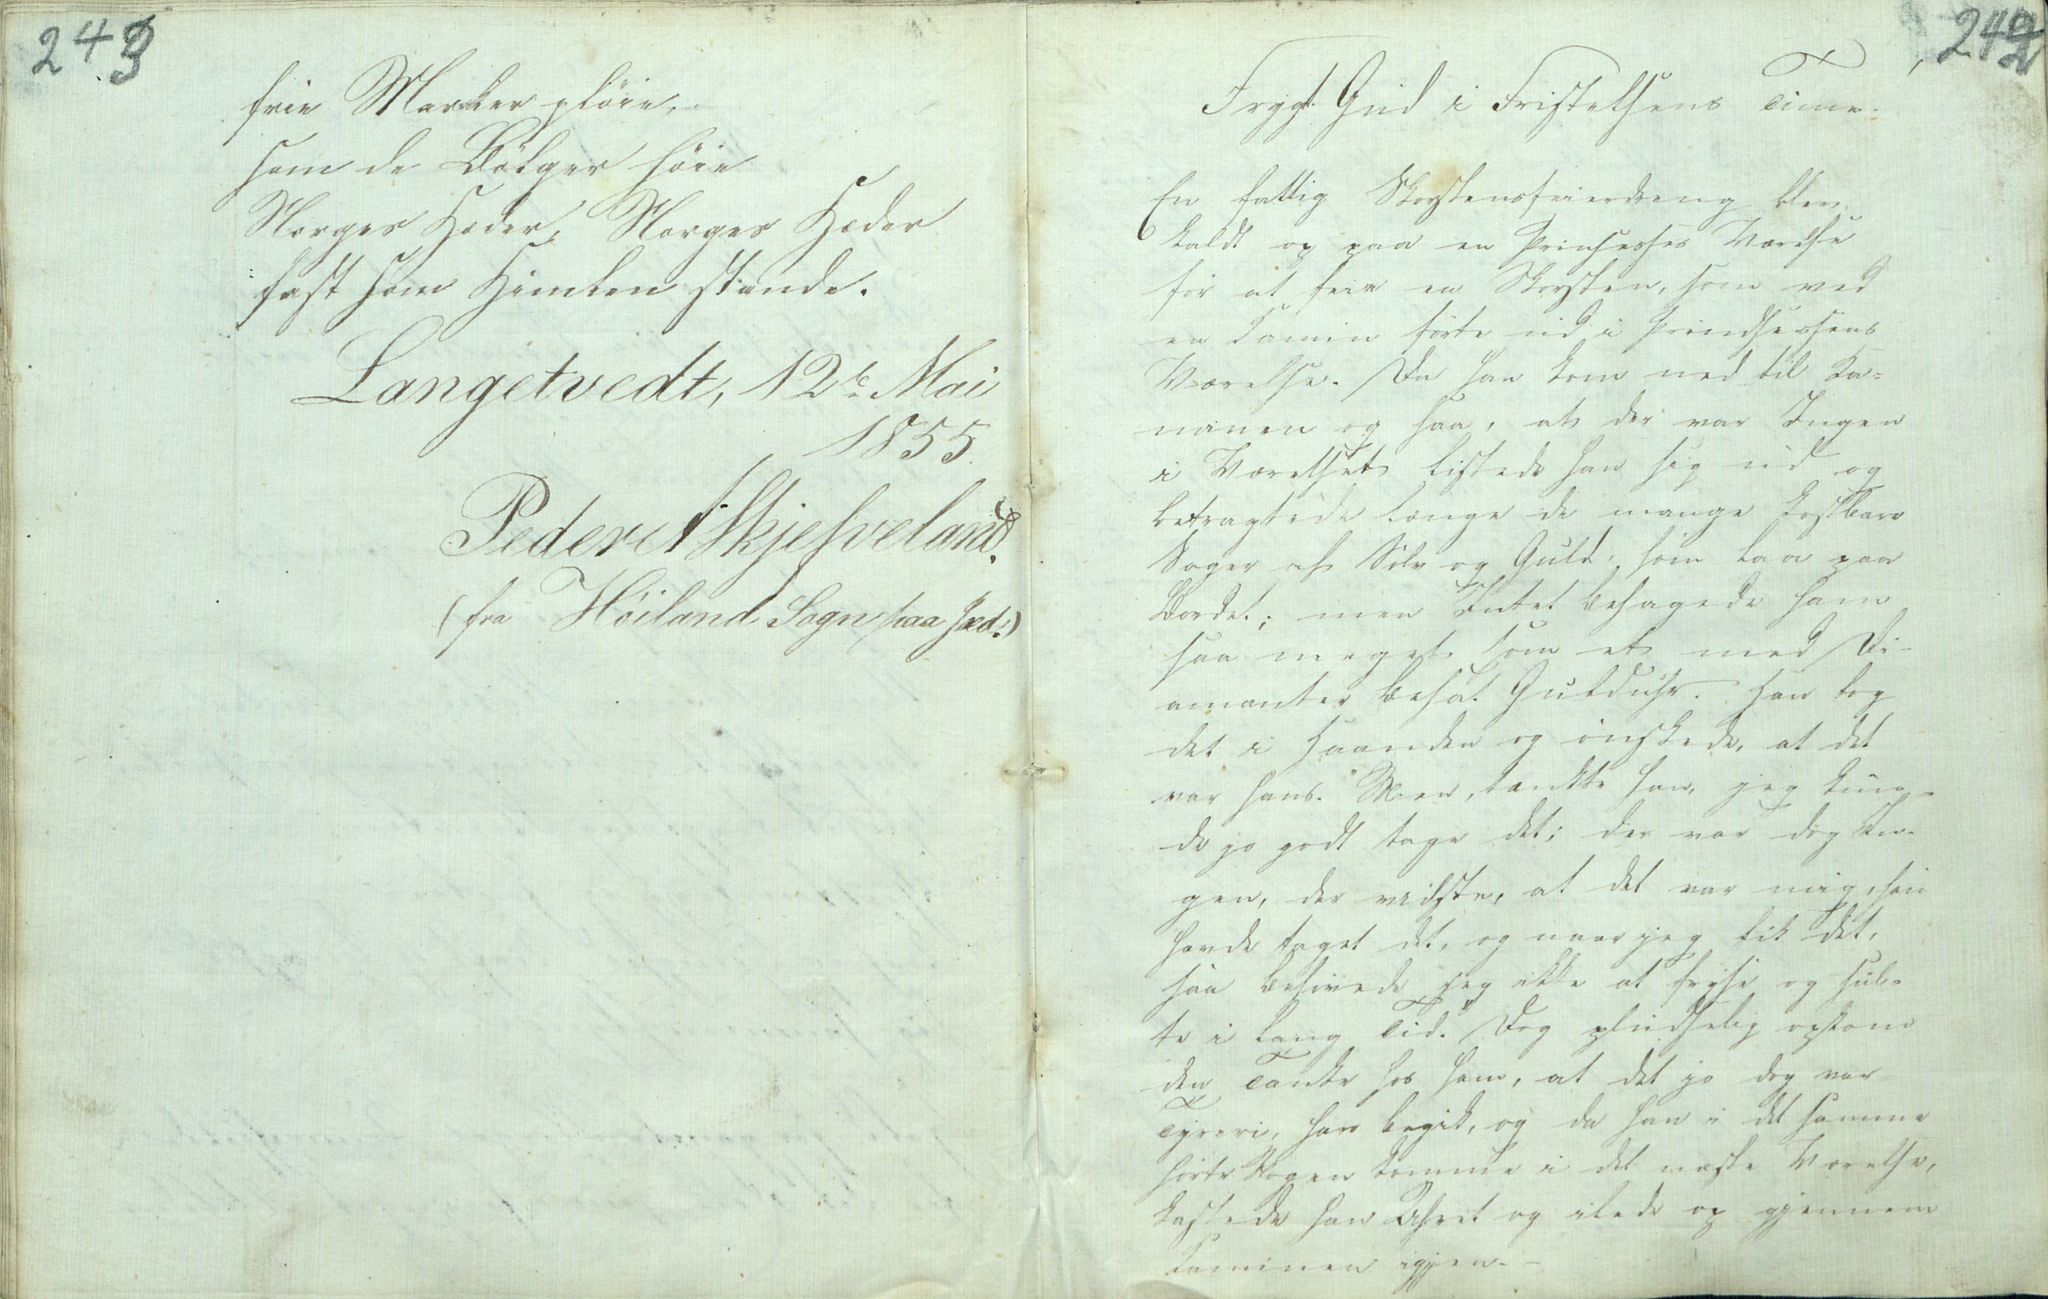 243
frie Marker pløie,
som de Bølger høie
Norges Hæder, Norges Hæder
fast som Himlen stande.
Langetvedt, 12te Mai
1855.
Peder A Skjesveland.
(fra Høiland Sogn paa Jæd.)
242
Frygt Gud i Fristelsens Time.
En fattig Skorstensfeierdreng blev
kaldt op paa en Prinsesses Værelse
for at feie en Skorsten, som ved
en Kamin førte ud i Prindsessens
Værelse. Da han kom ned til Ka-
minen og saa, at der var Ingen
i Værelset listede han sig ud og
betragtede længe de mange kostbare
Sager af Sølv og Guld, som laa paa
Bordet; men Intet behagede ham
saa meget som et med Di-
amanter besat Gulduhr. Han tog
det i Haanden og ønskede, at det
var hans. "Men, tænkte han, jeg kun-
de jo godt tage det; der var dog In-
gen, der vidste, at det var mig, som
havde taget det, og naar jeg fik det,
saa behøvede jeg ikke at fryse og sul-
te i lang Tid." Dog pludselig opkom
den Tanke hos ham, at det jo dog var
Tyveri, han begik, og da han i det samme
hørte Nogen komme i det næste Værelse,
kastede han Uhret og ilede op gjennem
Kaminen igjen.-